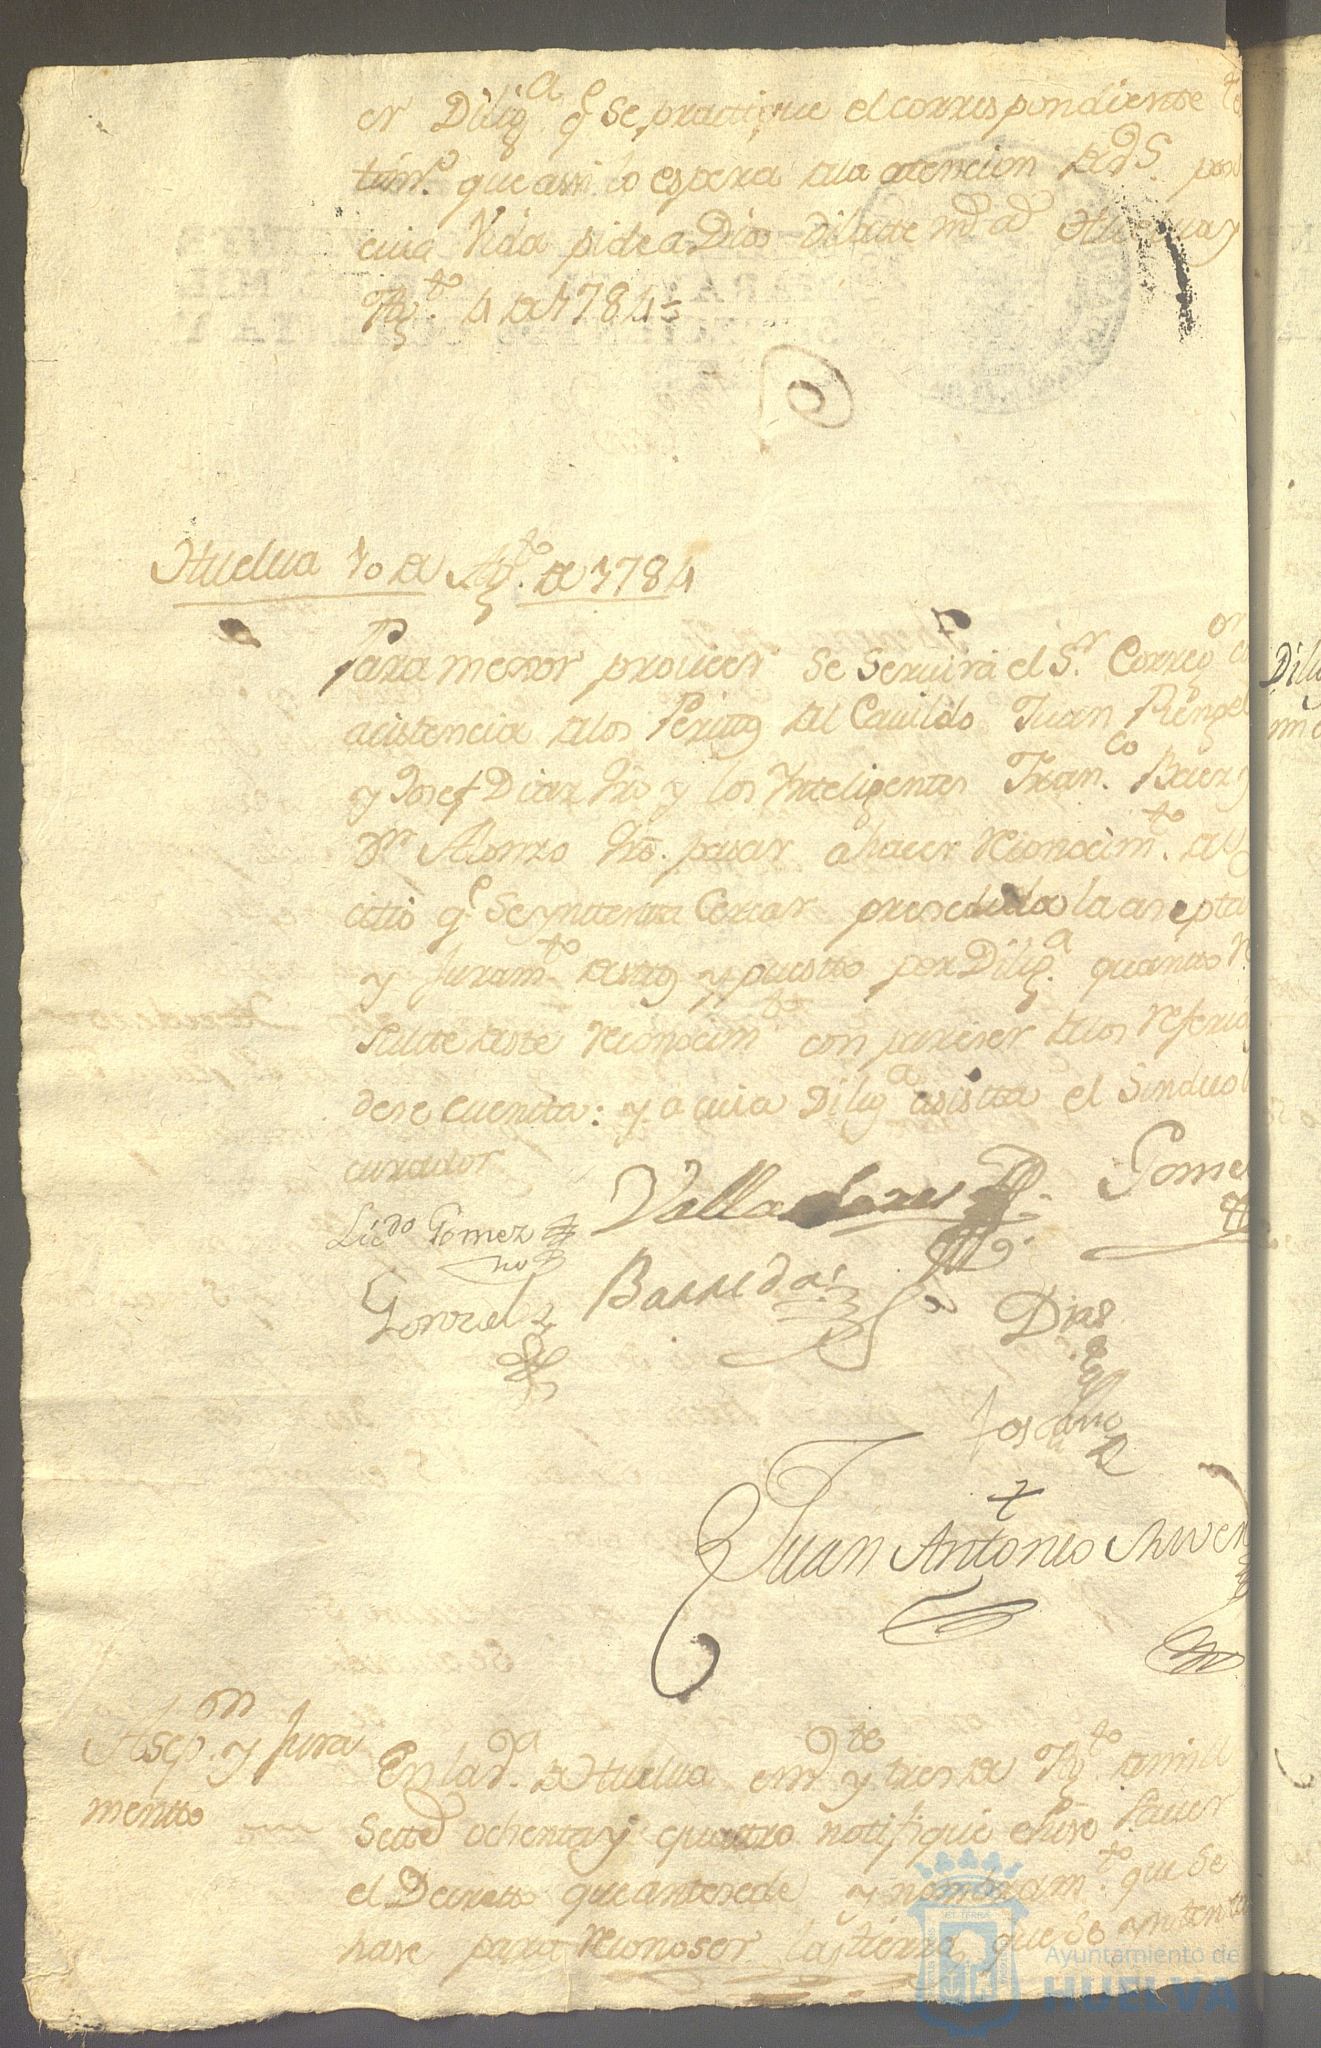 en Dilig.a q.e Se practique el correspondiente
tim.o que assi lo espera de la atencion de V.S. por
cuia Vida pide a Dios dilate m.s a.s Huelva y
Ag.to 4 de 1784=
Huelva 10 de Ag.to de 1784
Para mexor proveer Se Servirá el S.r Correg.or
acistencia de los Peritos del Cavildo Juan Rengel
y Josef Diaz Hro y los Ynteligentes Fran.co Baez y
D.n Alonzo Hro. pasar a hacer reconocim.to del
citio q.e Se yntenta Cercar presedida la asepta
y Juram.to destos y puesto por Dilig.a quanto re
sulte deste reconocim.to con pareser de los referidos
dese cuenta: y a cuia Dilig.a asista el Sindico
curador
Lic.do Gomez
Valladares
Gome
Gonzalz
Barreda
Dias
Toscano
Juan Antonio
Asep.on y Jura
mento
En la d.a de Huelva en d y tres de Ag.to de mill
Sett.s ochenta y quatro notifique e hise Saver
el Decreto que antesede y nombram.to que Se
hase para reconoser las tierras que Se yntenta
Dili
Ayuntamiento de
HUELVA